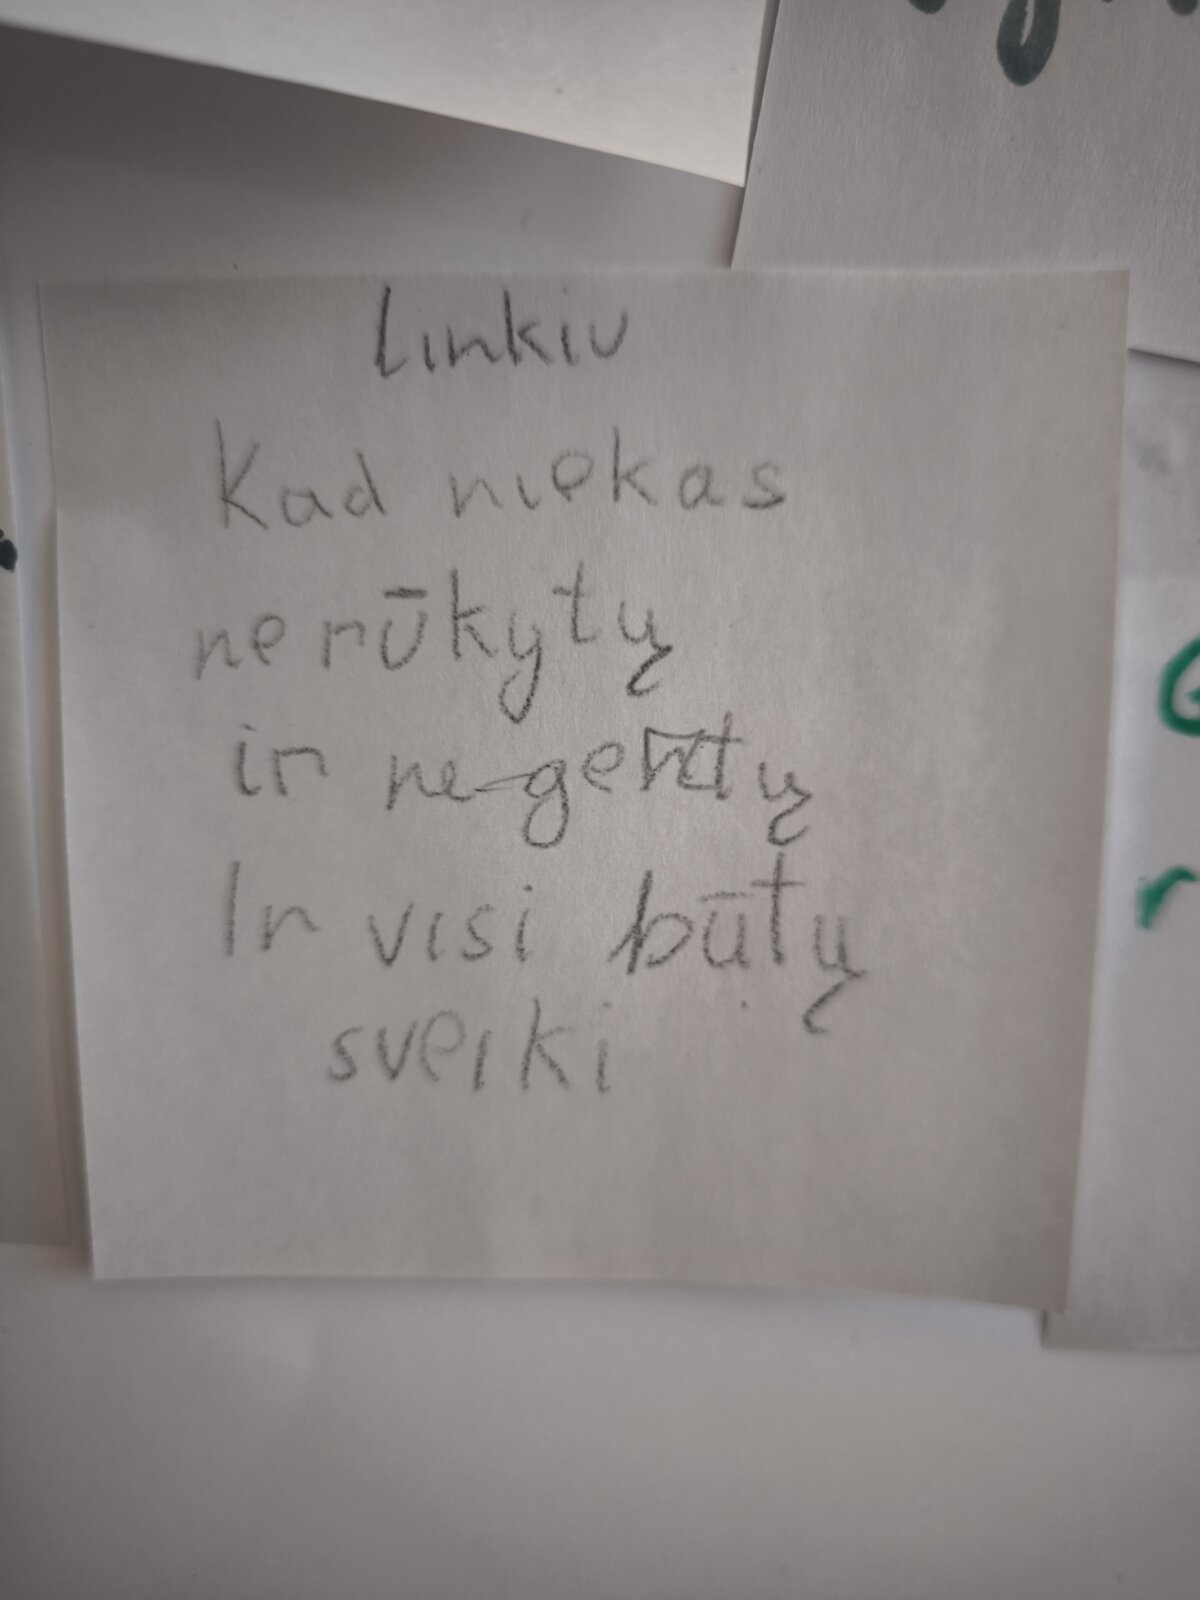 Linkiu
Kad niekas
nerūkytų
ir ne-gertų
Ir visi būtų
sveiki